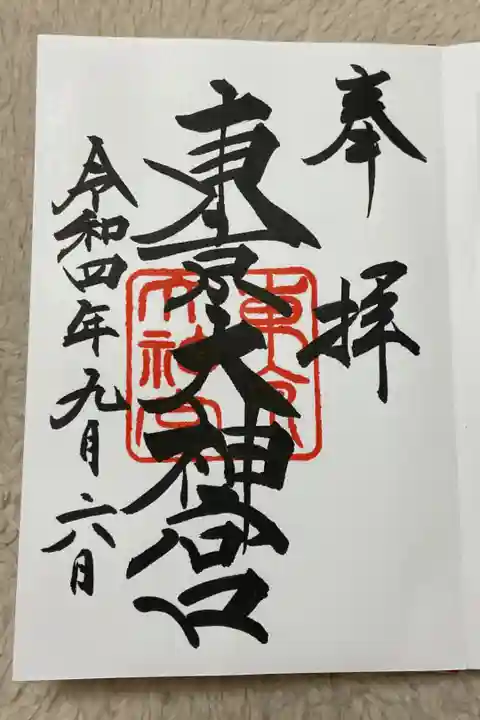 奉拝
東京大神宮
東京大神宮
令和四年九月六日